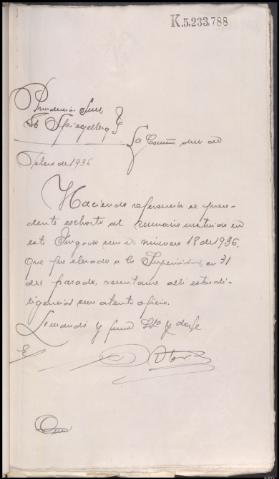 K.5.233.788
Providencia Juez
Sr
La Coruña
Febrero de 1936
Haciendo referencia el prece-
dente exhorto al sumario instruido en
este Juzgado con el número 18 de 1936,
que fue elevado a la Superioridad en 31
del pasado, remítanse allí estas di-
ligencias con atento oficio.
Lo mandó y firma SSª y doy fe